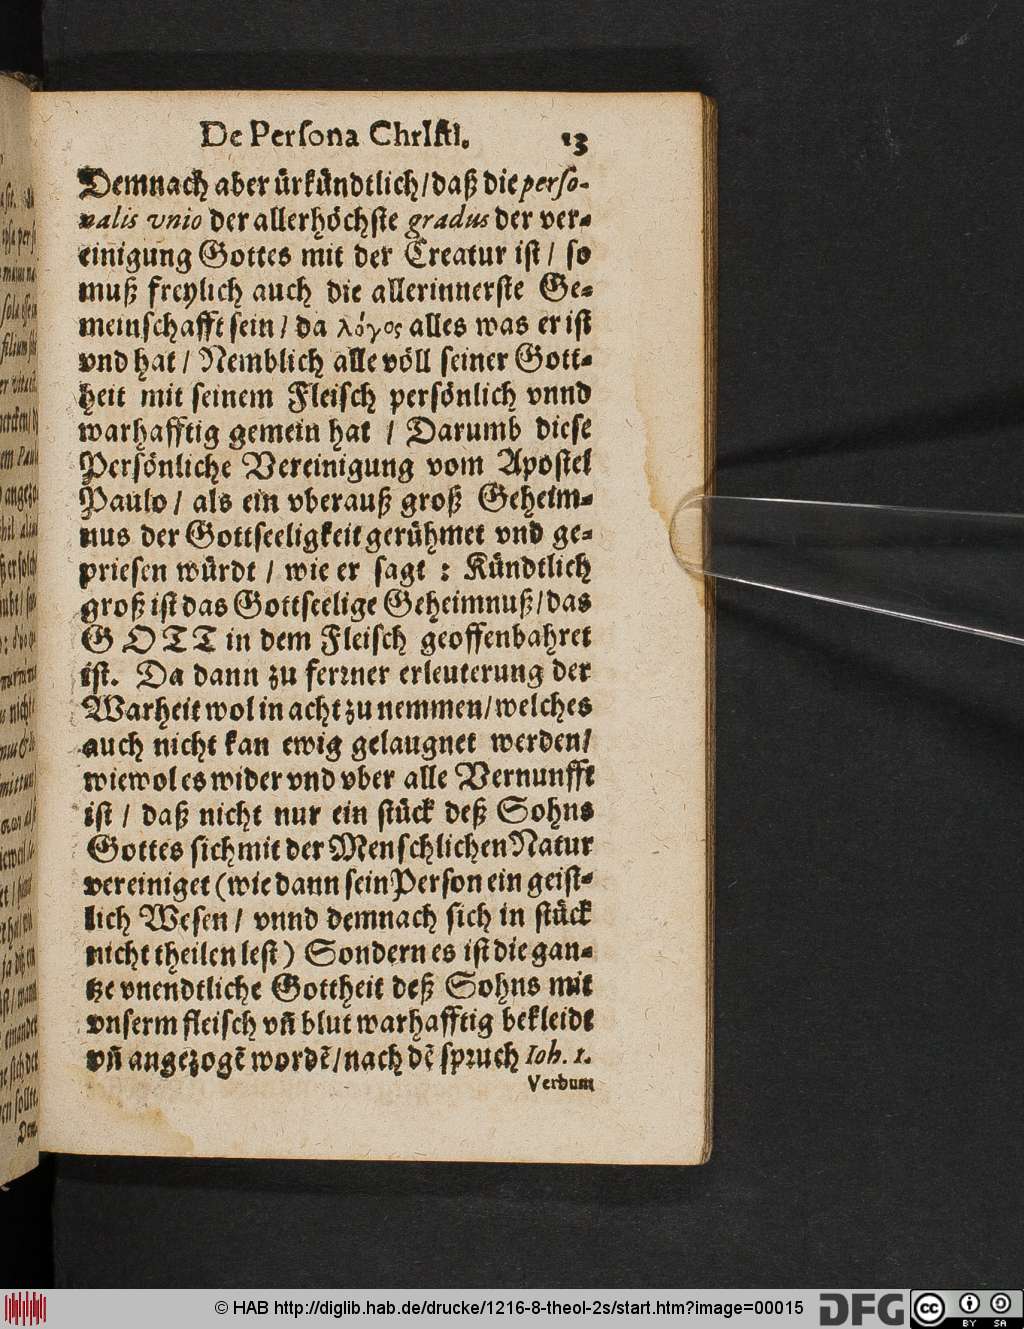 De Perſona ChrIſtI. 13
Demnach aber ürkündtlich / daß die perſo-
nalis vnio der allerhöchſte gradus der ver-
einigung Gottes mit der Creatur iſt / ſo
muß freylich auch die allerinnerſte Ge-
meinſchafft ſein / da λόγος alles was er iſt
vnd hat / Nemblich alle völl ſeiner Gott-
heit mit ſeinem Fleiſch perſönlich vnnd
warhafftig gemein hat / Darumb dieſe
Perſönliche Vereinigung vom Apoſtel
Paulo / als ein vberauß groß Geheim-
nus der Gottſeeligkeit gerühmet vnd ge-
prieſen würdt / wie er ſagt : Kündtlich
groß iſt das Gottſeelige Geheimnuß / das
GOTT in dem Fleiſch geoffenbahret
iſt. Da dann zu ferꝛner erleuterung der
Warheit wol in acht zu nemmen / welches
auch nicht kan ewig gelaugnet werden /
wiewol es wider vnd vber alle Vernunfft
iſt / daß nicht nur ein ſtück deß Sohns
Gottes ſich mit der Menſchlichen Natur
vereiniget (wie dann ſein Perſon ein geiſt-
lich Weſen / vnnd demnach ſich in ſtück
nicht theilen leſt) Sondern es iſt die gan-
tze vnendtliche Gottheit deß Sohns mit
vnſerm fleiſch vñ blut warhafftig bekleidt
vñ angezogẽ wordẽ / nach dẽ ſpꝛuch Ioh. 1.
Verbum
© HAB http://diglib.hab.de/drucke/1216-8-theol-2s/start.htm?image=00015
DFG
cc BY SA